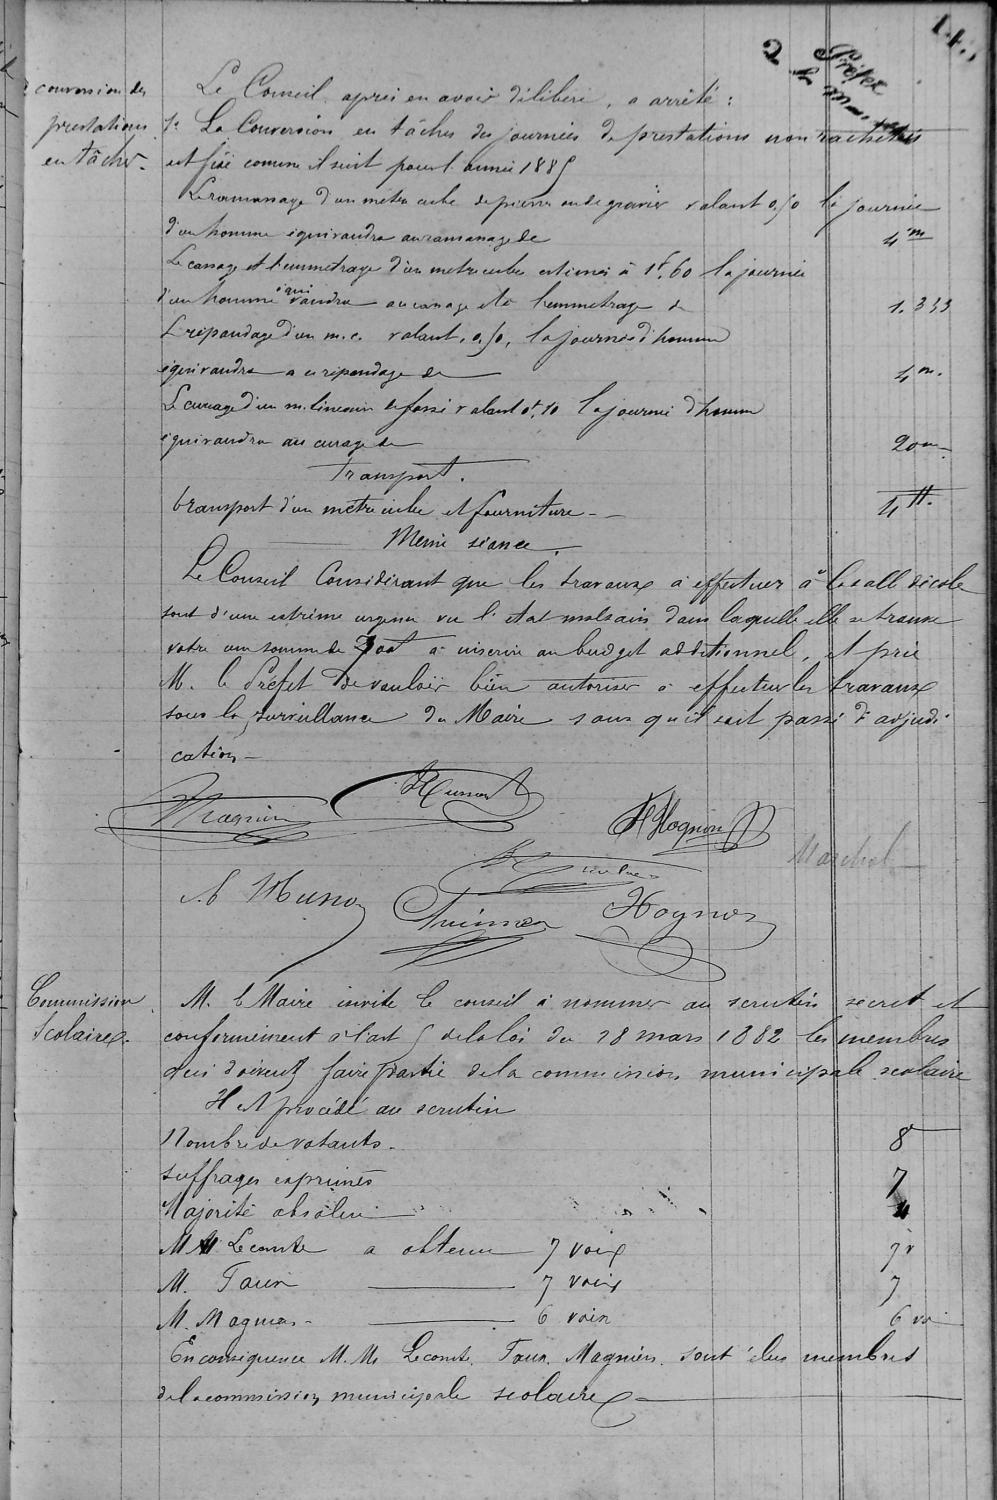 14
Préfet
conversion des
prestations
en tâches.
Le Conseil, après en avoir délibéré, a arrêté :
1º La Conversion en tâches des journées de prestations non rachetées
est fixé comme il suit pour l'année 1885
Le ramassage d'un mètre cube de pierres ou de gravier valant 0,50 la journée
d'un homme équivaudra au ramassage de 4 m
Le cassage et l'emmetrage d'un metre cube estimés à 1f,60 la journée
d'un homme équivaudra au cassage et à l'emmetrage de 1.333
Le répandage d'un m.c. valant 0,50, la journée d'homme
équivaudra a un répandage de 4 m.
Le curage d'un m. lineaire de fossé valant 0f,10 la journée d'homme
équivaudra au curage de 20 m
Transport.
transport d'un mètre cube et fourniture 4 ff.
Même séance.
Le Conseil Considérant que les travaux à effectuer à la salle d'école
sont d'une extrême urgence vu l'état malsain dans laquelle elle se trouve
vote une somme de à inscrire au budget additionnel, et prie
M. le Préfet de vouloir bien autoriser à effectuer les travaux
sous la surveillance du Maire sans qu'il soit passé d'adjudi-
cation
Magnien
Husson
H Hognon
Marchal
Husson
Hognon
Commission
Scolaire.
M. le Maire invite le conseil à nommer au scrutin secret et
conformément à l'art 5 de la loi du 28 mars 1882 les membres
qui doivent faire partie de la commission municipale scolaire
Il est procédé au scrutin
Nombre de votants. 8
suffrages exprimés 7
Majorité absolue 4
M Lecomte a obtenu 7 voix 7 v
M. Faux 7 voix 7
M. Magnien 6 voix 6 voi
En conséquence M.M. Lecomte, Faux, Magnien, sont élus membres
de la commission municipale scolaire